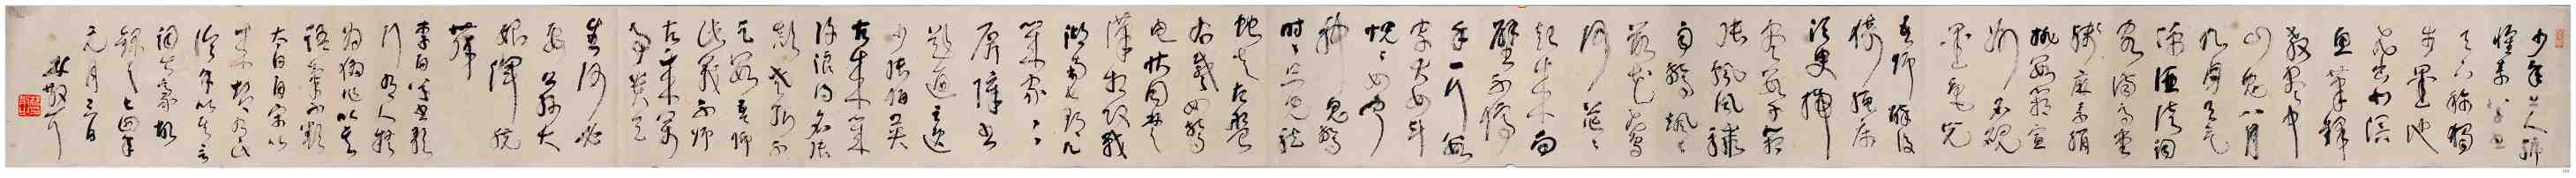 少年上人號
懷素草書
天下稱獨
步墨池
飛出北溟
魚筆鋒
殺盡中
山兔八月
九月天氣
涼酒徒詞
客滿高堂
牋麻素絹
排數箱宣
州石硯
墨色光
吾師醉後
倚繩床
須臾掃
盡數千
張飄風驟
雨驚颯颯
落花飛雪
何茫茫
起來向
壁不停
手一行數
字大如斗
怳怳如聞
神鬼驚
時時只見龍
蛇走左盤
右蹙如驚
電狀同楚
漢相攻戰
湖南七郡凡
幾家家家
屏障書
題遍王逸
少張伯英
古來幾
許浪得名張
顛老死不
足數吾師
此義不師
古古來萬
事貴天
生何必
要公孫大
娘渾脫
舞
李白草書歌
行有人疑
為偽作以其
語氣不類
太白自宋以
來有此
論余以其言
詞豪放
錄之七四年
元月三日
林散耳